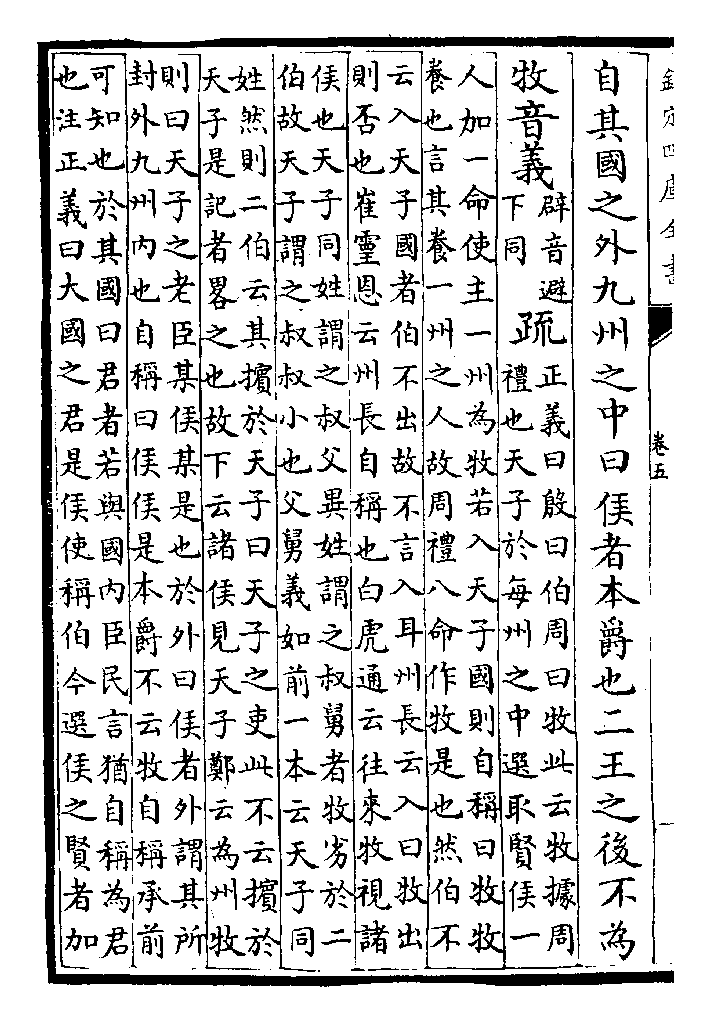 欽定四庫全書
卷五
自其國之外九州之中曰侯者本爵也二王之後不為
牧音義
辟音避
下同
疏
正義曰殷曰伯周曰牧此云牧據周
禮也天子於每州之中選取賢侯一
人加一命使主一州為牧若入天子國則自稱曰牧牧
養也言其養一州之人故周禮八命作牧是也然伯不
云入天子國者伯不出故不言入耳州長云入曰牧出
則否也崔靈恩云州長自稱也白虎通云往來牧視諸
侯也天子同姓謂之叔父異姓謂之叔舅者牧劣於二
伯故天子謂之叔叔小也父舅義如前一本云天子同
姓然則二伯云其擯於天子曰天子之吏此不云擯於
天子是記者畧之也故下云諸侯見天子鄭云為州牧
則曰天子之老臣某侯某是也於外曰侯者外謂其所
封外九州內也自稱曰侯侯是本爵不云牧自稱承前
可知也於其國曰君者若與國內臣民言猶自稱為君
也注正義曰大國之君是侯使稱伯今選侯之賢者加